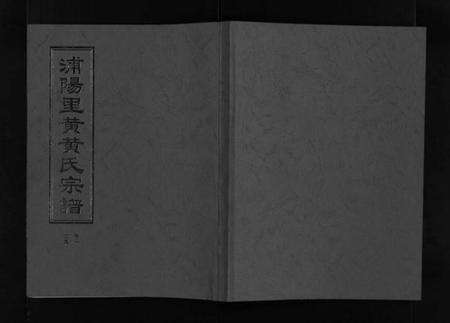 浦陽里黃黃氏宗譜